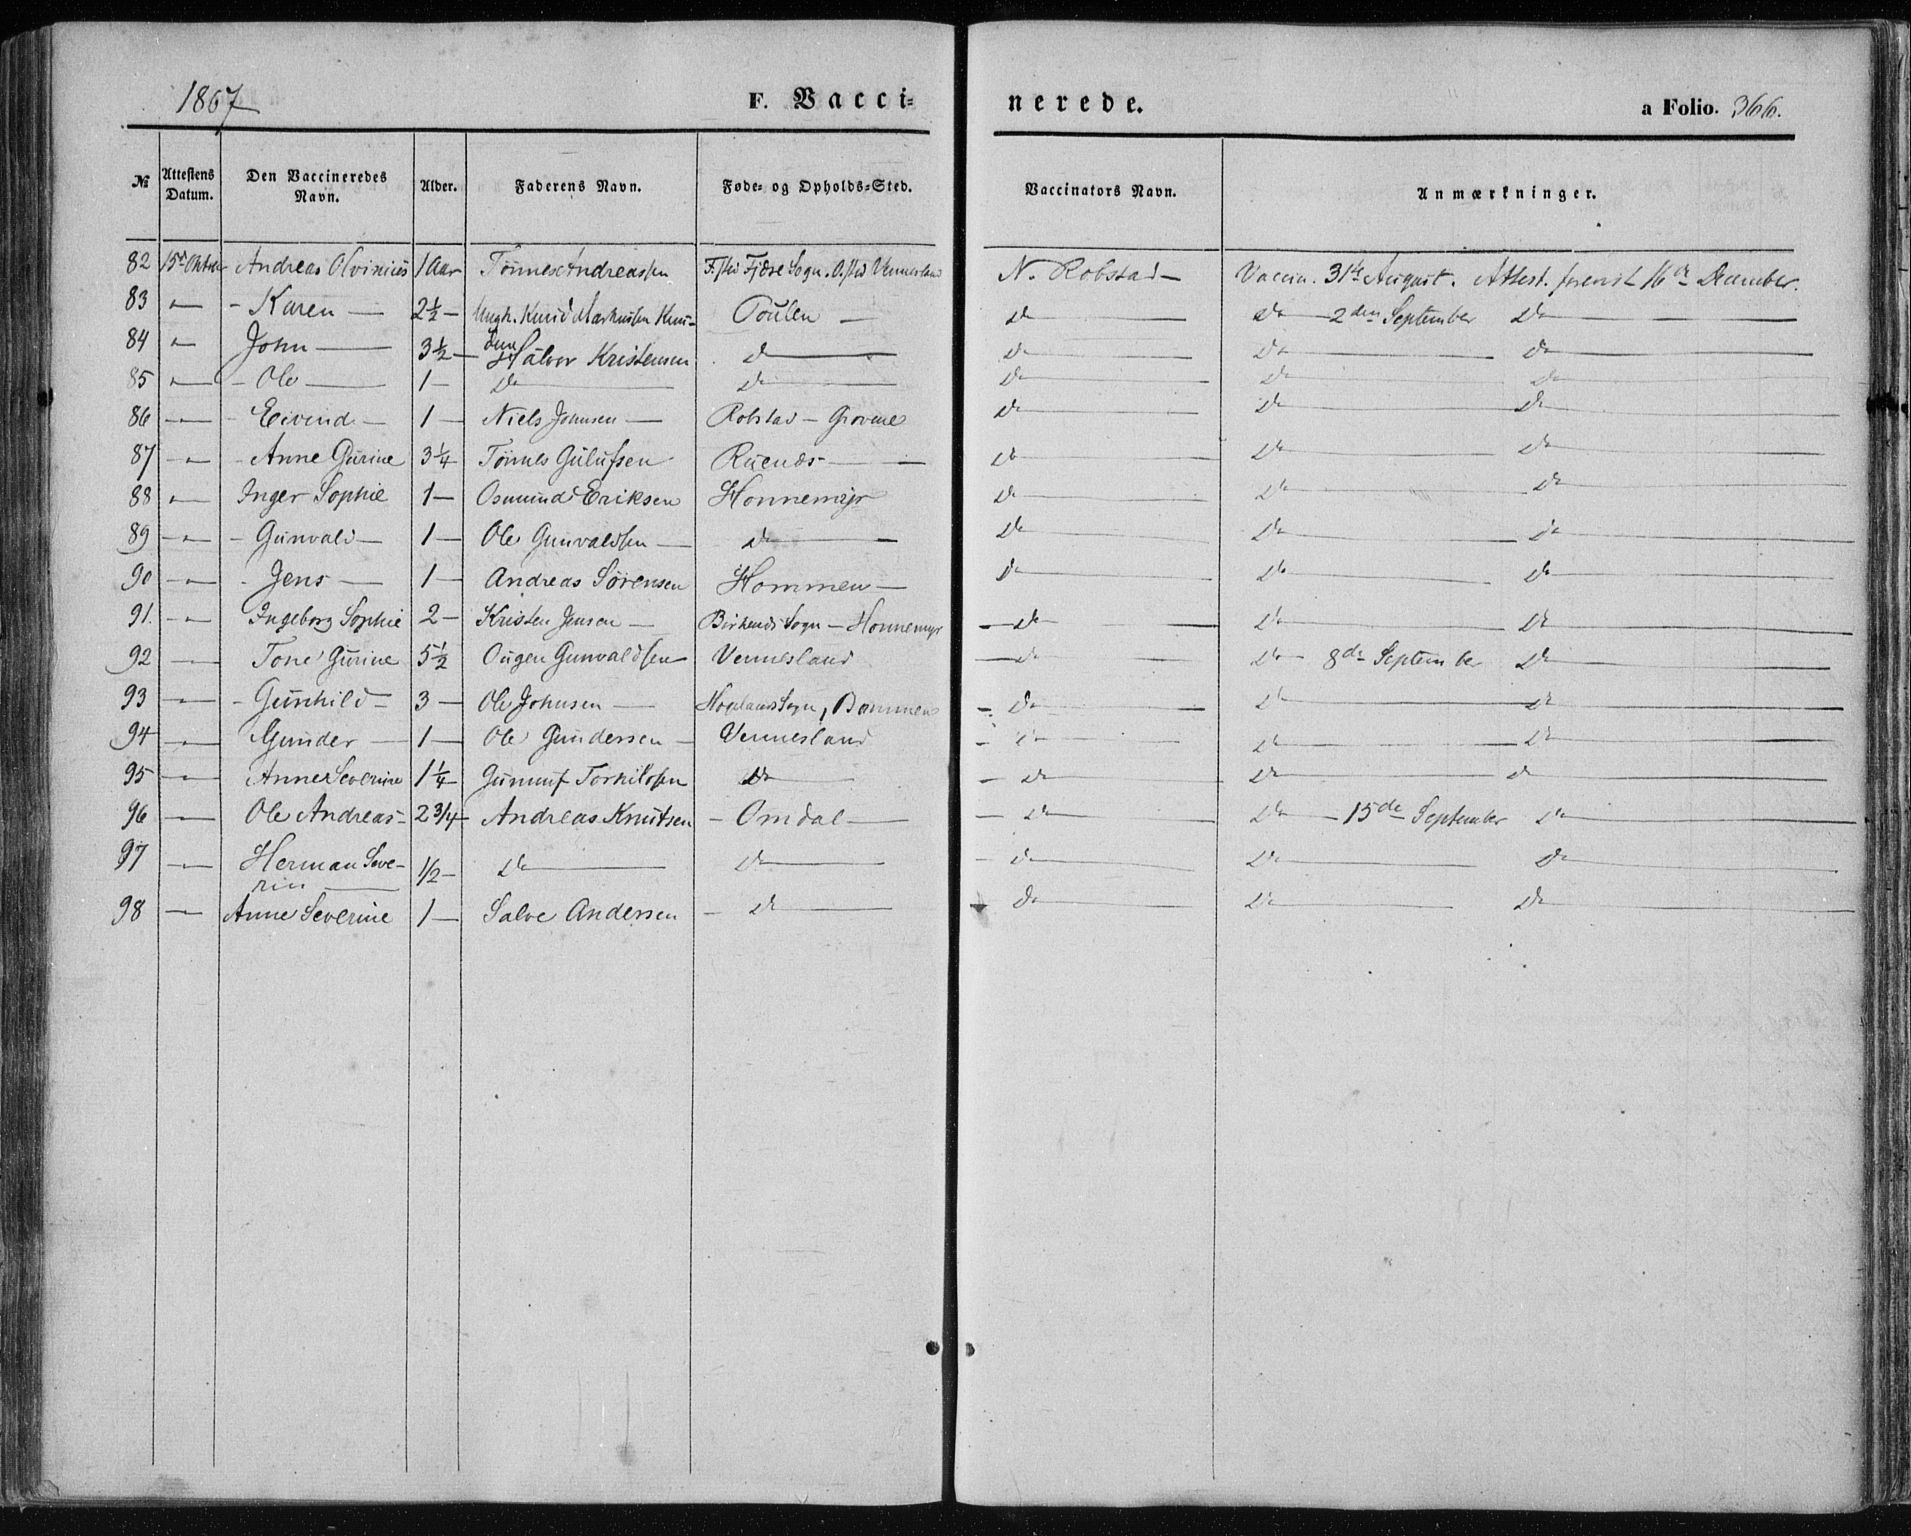 1867 F. Vacci= nerede. a Folio. 366.
№ Attestens Datum. Den Vaccineredes Navn. Alder. Faderens Navn. Føde- og Opholds-Sted. Vaccinators Navn. Anmærkninger.
82 15de Oktbr Andreas Olvinius 1 Aar Tönnes Andreassen F.sted Fjære Sogn. O.sted Vennesland N. Robstad — Vaccin. 31te August. Attest. forevist 16de December.
83 — " — - Karen — 2½ — Ungk. Knud Markussen Knu- Poulen — Do — Do — 2den September Do —
84 — " — John — 3½ — dsen Halvor Kristensen Do — Do — Do — Do —
85 — " — - Ole — 1 — Do — Do — Do — Do — Do —
86 — " — - Eivind — 1 — Niels Johnsen — Robstad — Grovene Do — Do — Do —
87 — " — - Anne Gurine 3¼ Tönnes Gulufsen Ruenæs — Do — Do — Do —
88 — " — Inger Sophie 1 — Osmund Eriksen Honnemyr Do — Do — Do —
89 — " — - Gunvald — 1 — Ole Gunvaldsen — Do — Do — Do — Do —
90 — " — - Jens — 1 — Andreas Sörensen Hommen — Do — Do — Do —
91. — " — Ingeborg Sophie 2 — Kristen Jensen — Birkenæs Sogn — Honnemyr — Do — Do — Do —
92 — " — Tone Gurine 5½ Ougen Gunvaldsen Vennesland — Do — Do — 8de September Do —
93 — " — - Gunhild — 3 — Ole Johnsen — Sogn, — Do — Do — Do —
94 — " — Gunder — 1 — Ole Gundersen — Vennesland — Do — Do — Do —
95 — " — Anne Severine 1¼ Torkildsen Do — — Do — Do — Do —
96 — " — Ole Andreas — 2 3/4 — Andreas Knutsen — Omdal — — Do — Do — 15de September Do —
97 — " — Herman Seve- ½ — Do — Do — — Do — Do — Do —
rin —
98 — Anne Severine 1 — Salve Andersen — Do — Do — Do — Do —